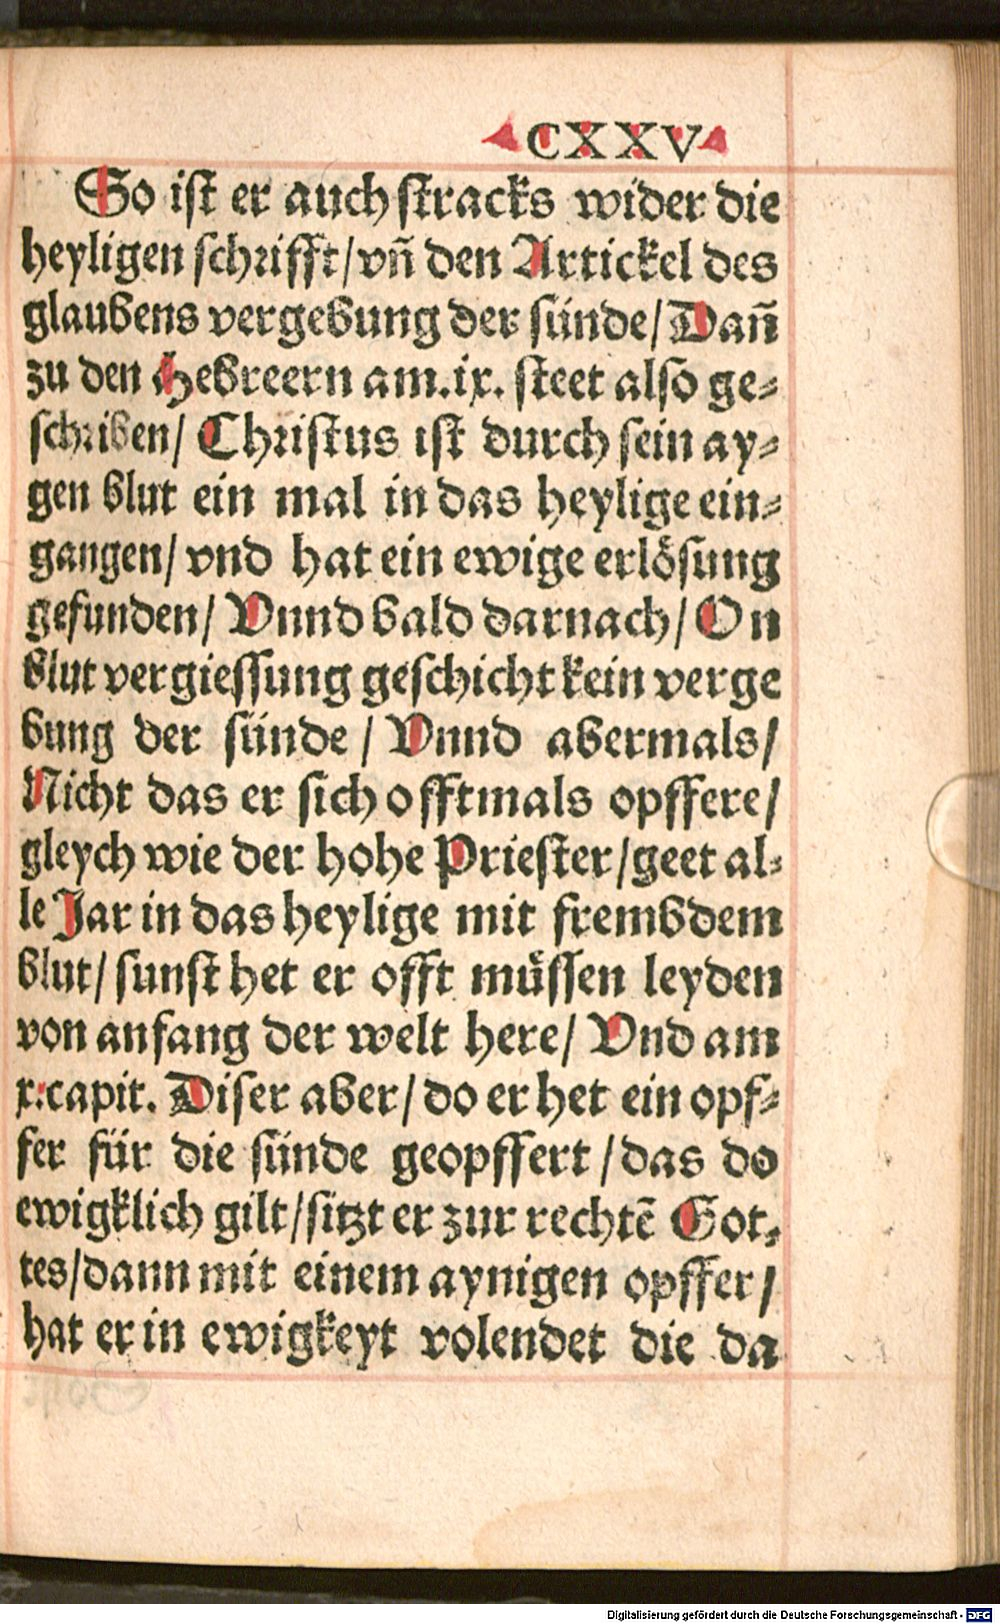 CXXV
So ist er auch stracks wider die
heyligen schrifft/ vñ den Artickel des
glaubens vergebung der sünde/ Dañ
zu den Hebreern am.ix. steet also ge⸗
schriben/ Christus ist durch sein ay⸗
gen blut ein mal in das heylige ein⸗
gangen/ vnd hat ein ewige erlösung
gefunden/ Vnnd bald darnach/ On
blut vergiessung geschicht kein verge
bung der sünde / Vnnd abermals/
Nicht das er sich offtmals opffere/
gleych wie der hohe Priester/ geet al⸗
le Jar in das heylige mit frembdem
blut/ sunst het er offt müssen leyden
von anfang der welt here/ Vnd am
x.capit. Diser aber/ do er het ein opf⸗
fer für die sünde geopffert / das do
ewigklich gilt/ sitzt er zur rechtē Got⸗
tes/ dann mit einem aynigen opffer/
hat er in ewigkeyt volendet die da
Digitalisierung gefördert durch die Deutsche Forschungsgemeinschaft - DFG